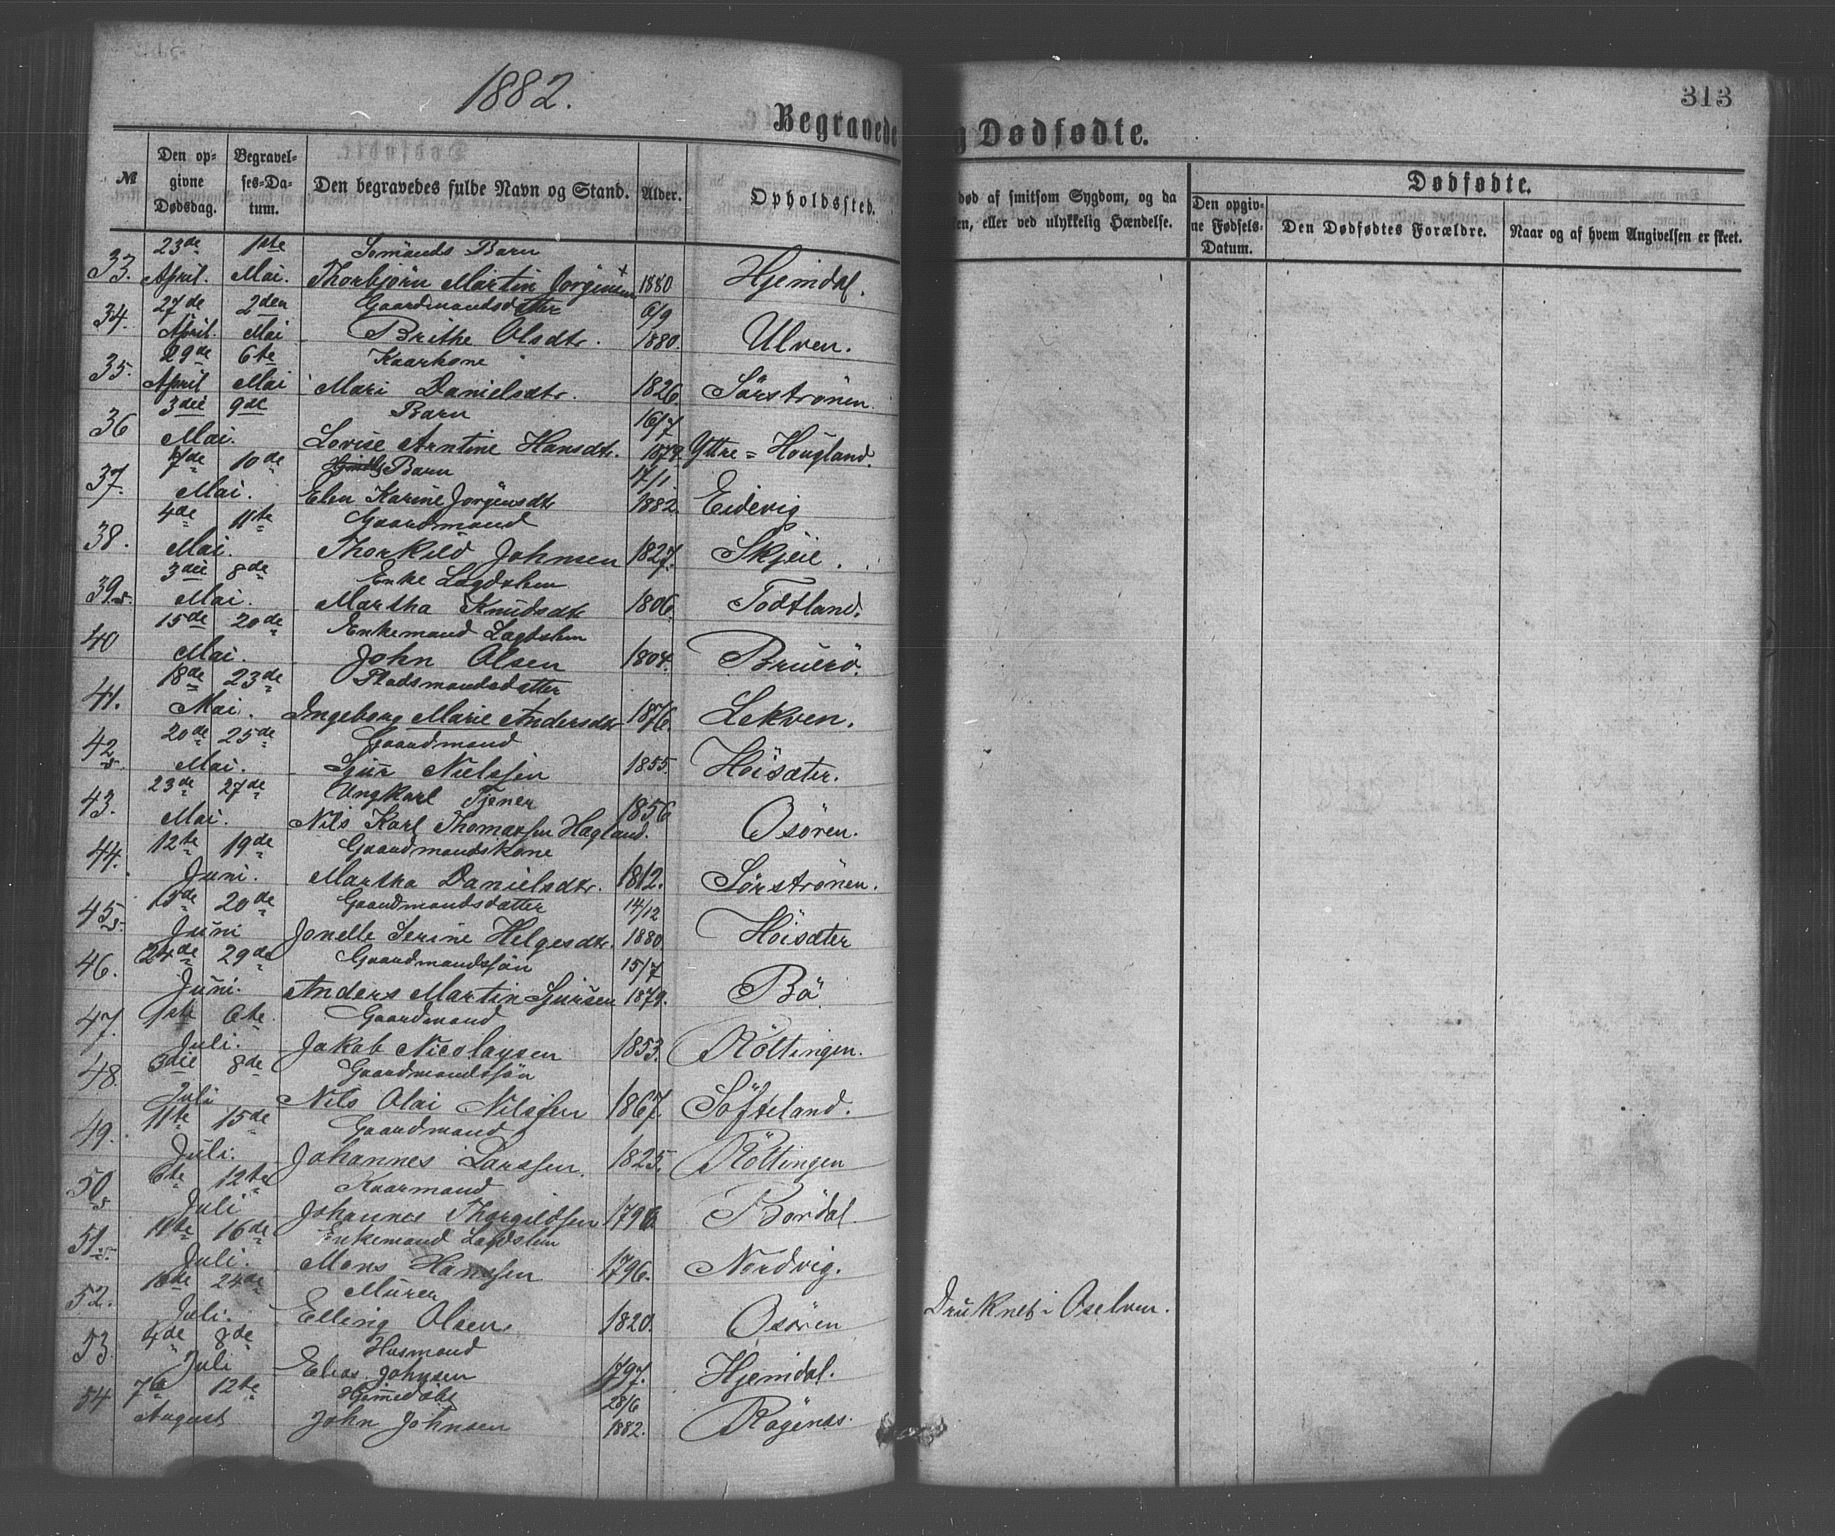 1882.
313
Begravede
g Dødfødte.
№
Den opgivne Dødsdag.
Begravelses-Datum.
Den begravedes fulde Navn og Stand.
Alder.
Opholdssted.
død af smitsom Sygdom, og da
en, eller ved ulykkelig Hændelse.
Dødfødte.
Den opgivne Fødsels-Datum.
Den Dødfødtes Forældre.
Naar og af hvem Angivelsen er skeet.
23de 1ste Sömands Barn
33. April. Mai. Thorbjörn Martin Jörgensen 1880 Hjemdal.
27de 2den Gaardmandsdatter 6/9
34. April. Mai Brithe Olsdtr. 1880. Ulven.
29de 6te Kaarkone
35. April Mai Mari Danielsdtr. 1826. Sörströnen.
3die 9de Barn 16/7
36 Mai. Lovise Arntine Hansdtr. 1879. Yttre = Hougland.
7de 10de Barn 17/1
37. Mai. Elen Karine Jörgensdtr 1882. Eidevig
4de 11te Gaardmand
38. Mai. Thorkild Johnsen 1827. Skjeie.
3die 8de Enke Lægdslem
39. s. Mai. Martha Knudsdtr 1806. Tödtland.
15de 20de Enkemand Lægdslem
40 Mai. John Olsen 1804. Bruerö.
18de 23de Pladsmandsdatter
41. Mai. Ingeborg Marie Andersdtr 1876. Lekven.
20de 25de Gaardmand
42 s. Mai. Sjur Nielssen 1855. Höisæter.
23de 27de Ungkarl Tjener
43. Mai. Nils Karl Thomassen Hagland. 1856 Osören.
12te 19de Gaardmandskone
44. Juni. Martha Danielsdtr. 1812. Sörströnen.
15de 20de Gaardmandsdatter 14/12
45 s. Juni Jonelle Serine Helgesdtr. 1880. Höisæter
24de 29de Gaardmandssön 15/7
46. Juni. Anders Martin Sjursen 1879. Bö
1ste 6te Gaardmand
47. Juli. Jakob Nicolaysen 1853. Röttingen.
3die 8de Gaardmandssön
48. Juli Nils Olai Nilssen 1867. Söfteland.
11te 15de Gaardmand
49. Juli. Johannes Larssen. 1825. Röttingen
6te 12te Kaarmand
50 s Juli Johannes Thorgildsen 1796. Bördal
11te 16de Enkemand Lægdslem
51 s. Juli. Mons Hanssen 1796. Nordvig.
18de 24de Murer
52. Juli. Elling Olsen 1820. Osören Druknet i Oselven.
4de 8de Husmand
53. Juli Elias Johnsen 1797. Hjemdal.
7de 12te Hjemedöbt 28/6
54 August John Johnsen 1882. Rögenæs.